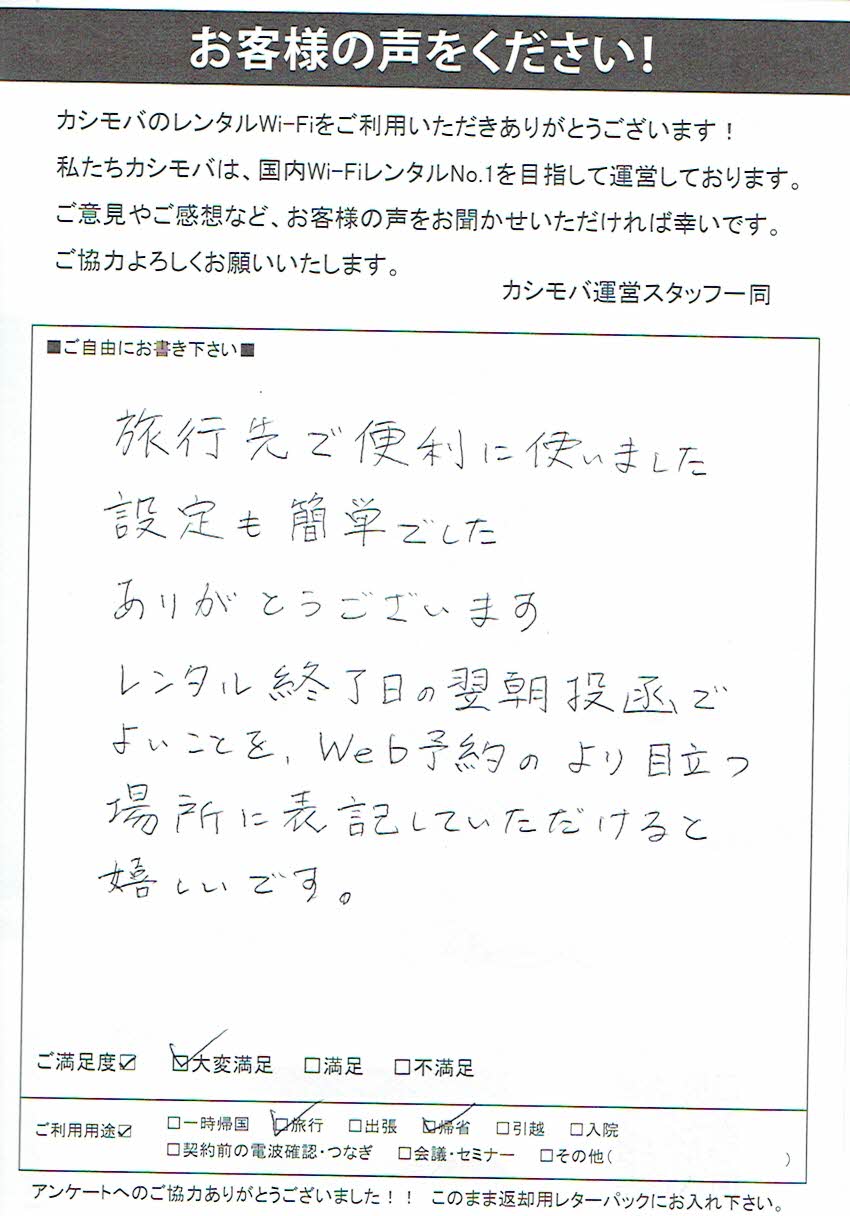 お客様の声をください!
カシモバのレンタルWi-Fiをご利用いただきありがとうございます！
私たちカシモバは、国内Wi-FiレンタルNo.1を目指して運営しております。
ご意見やご感想など、お客様の声をお聞かせいただければ幸いです。
ご協力よろしくお願いいたします。
カシモバ運営スタッフ一同
■ご自由にお書き下さい■
旅行先で便利に使いました
設定も簡単でした
ありがとうございます
レンタル終了日の翌朝投函で
よいことを、Web予約のより目立つ
場所に表記していただけると
嬉しいです。
ご満足度☑ ☑大変満足 □満足 □不満足
ご利用用途☑ □一時帰国 ☑旅行 □出張 ☑帰省 □引越 □入院
□契約前の電波確認・つなぎ □会議・セミナー □その他( )
アンケートへのご協力ありがとうございました！！ このまま返却用レターパックにお入れ下さい。